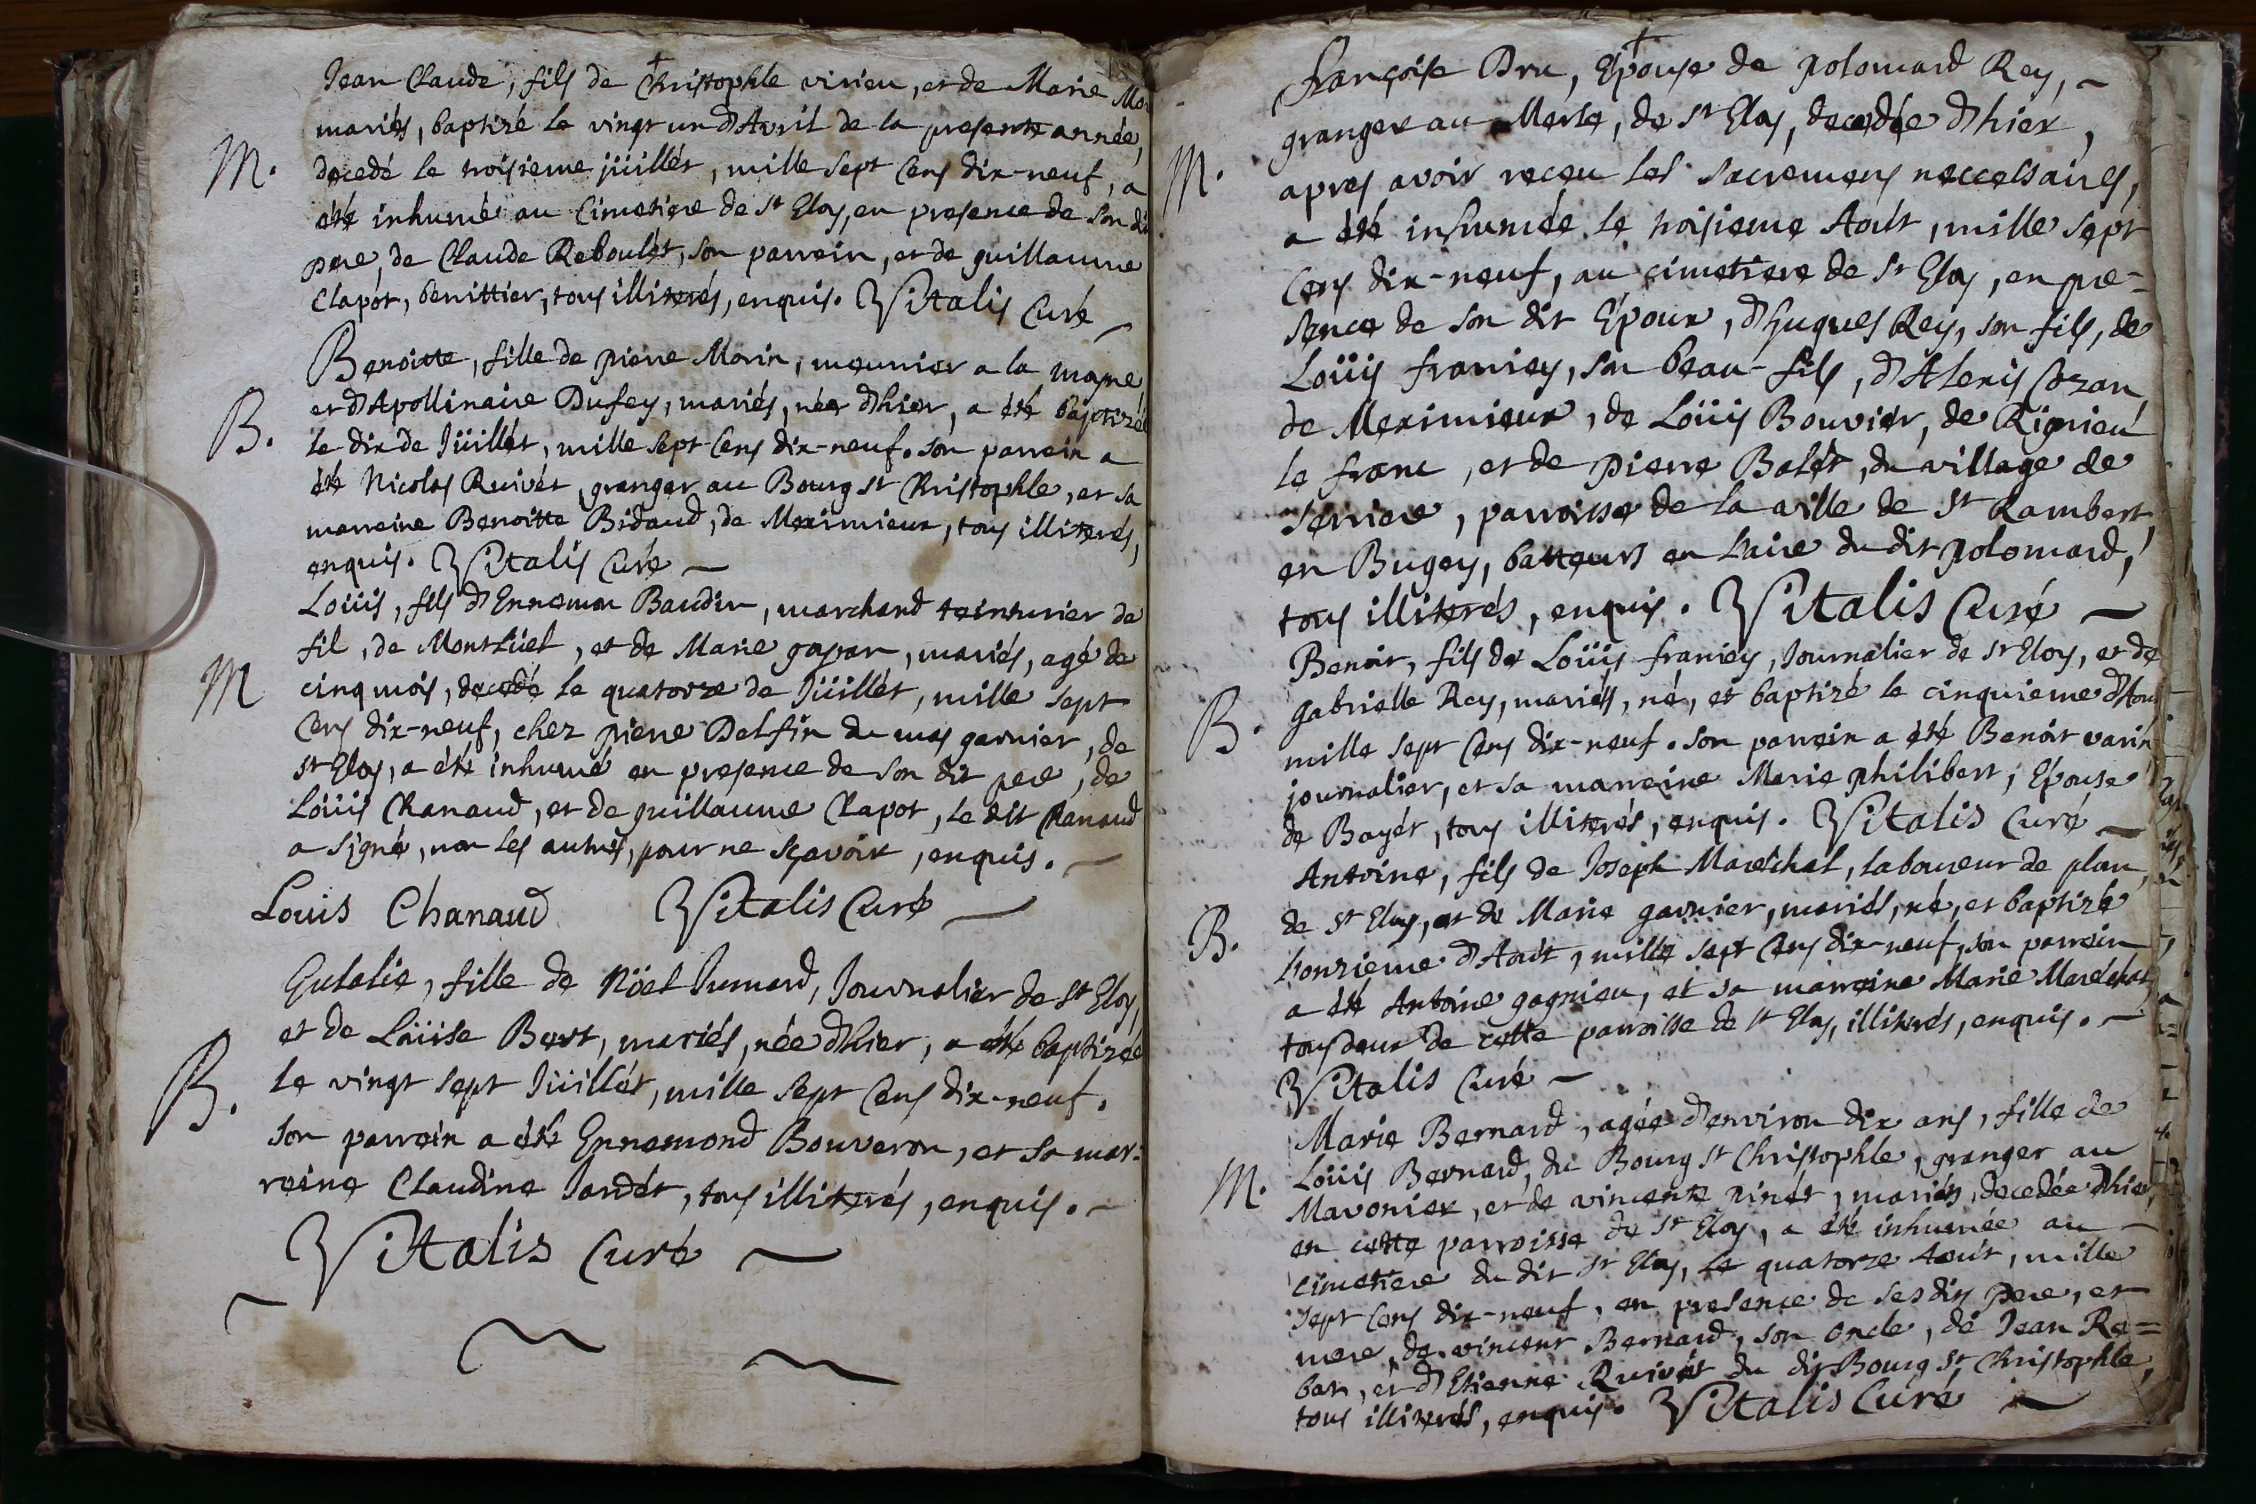 Jean Claude, fils de Christophle virieu, et de Marie
M.
mariés, baptizé le vingt un d'Avril de la presente année,
decedé le troisieme jüillét, mille sept Cens dix-neuf, a
été inhumé au Cimetiere de st Eloy, en presence de son dit
pere, de Claude Reboulét, son parrein, et de guillaume
Clapot, benittier, tous illiterés, enquis. Vitalis Curé
Benoitte, fille de pierre Morin, meunier a la
B.
et d'Apollinaire Dufey, mariés, née d'hier, a été baptizée
le dix de Jüillét, mille sept Cens dix-neuf. son parrein a
été Nicolas Ruivét, granger au Bourg st Christophle, et sa
marreine Benoitte Bidaud, de Meximieux, tous illiterés,
enquis. Vitalis Curé
Loüis, fils d'Ennemon Baudin, marchand teinturier de
fil, de Montlüel, et de Marie gapan, mariés, agé de
M
cinq mois, decedé le quatorze de Jüillét, mille sept
Cens dix-neuf, chez pierre Delfin du mas garnier, de
st Eloy, a été inhumé en presence de son dit pere, de
Loüis Chanaud, et de guillaume Clapot, le dit Chanaud
a signé, non les autres, pour ne sçavoir, enquis.
Louis Chanaud Vitalis Curé
Eulalie, fille de Nöel Jumard, Journalier de st Eloy,
et de Loüise Bert, mariés, née d'hier, a été baptizée
B.
le vingt sept Jüillét, mille sept Cens dix-neuf.
son parrein a été Ennemond Bouveron, et sa mar-
reine Claudine Jardét, tous illiterés, enquis.
Vitalis Curé
françoise Dru, Epouse de polomard Rey,
granger au Merle, de st Eloy, decedée d'hier,
M.
apres avoir receu les sacremens neccessaires,
a été inhumée le troisieme Août, mille sept
Cens dix-neuf, au cimetiere de st Eloy, en pre=
sence de son dit Epoux, d'Hugues Rey, son fils, de
Loüis franiey, son beau-fils, d'Alexis Cozan
de Meximieux, de Loüis Bouvier, de Rignieu
le franc, et de pierre Balét, du village de
Serriere, parroisse de la ville de st Rambert
en Bugey, batteurs en l'aire du dit polomard,
tous illiterés, enquis. Vitalis Curé
Benoit, fils de Loüis franiey, Journalier de st Eloy, et de
gabrielle Rey, mariés, né, et baptizé le cinquieme d'Aout
B.
mille sept Cens dix-neuf. son parrein a été Benoit varin
journalier, et sa marreine Marie philibert, Epouse
de Bayét, tous illiterés, enquis. Vitalis Curé
Antoine, fils de Joseph Maréchal, laboureur de plan,
de st Eloy, et de Marie garnier, mariés, né, et baptizé
B.
l'onzieme d'Août, mille sept Cens dix-neuf, son parrein
a été Antoine gagnieu, et sa marreine Marie Maréchal,
tous deux de cette parroisse de st Eloy, illiterés, enquis.
Vitalis Curé
Marie Bernard, agée d'environ dix ans, fille de
Loüis Bernard, du Bourg st Christophle, granger au
M.
Mavonier, et de vincente pinét, mariés, decedée d'hier,
en cette parroisse de st Eloy, a été inhumée au
cimetiere du dit st Eloy, le quatorze Août, mille
sept Cens dix-neuf, en presence de ses dits pere, et
mere, de vincent Bernard, son oncle, de Jean Re=
ban, et d'Etienne Ruivét du dit Bourg st Christophle,
tous illiterés, enquis. Vitalis Curé